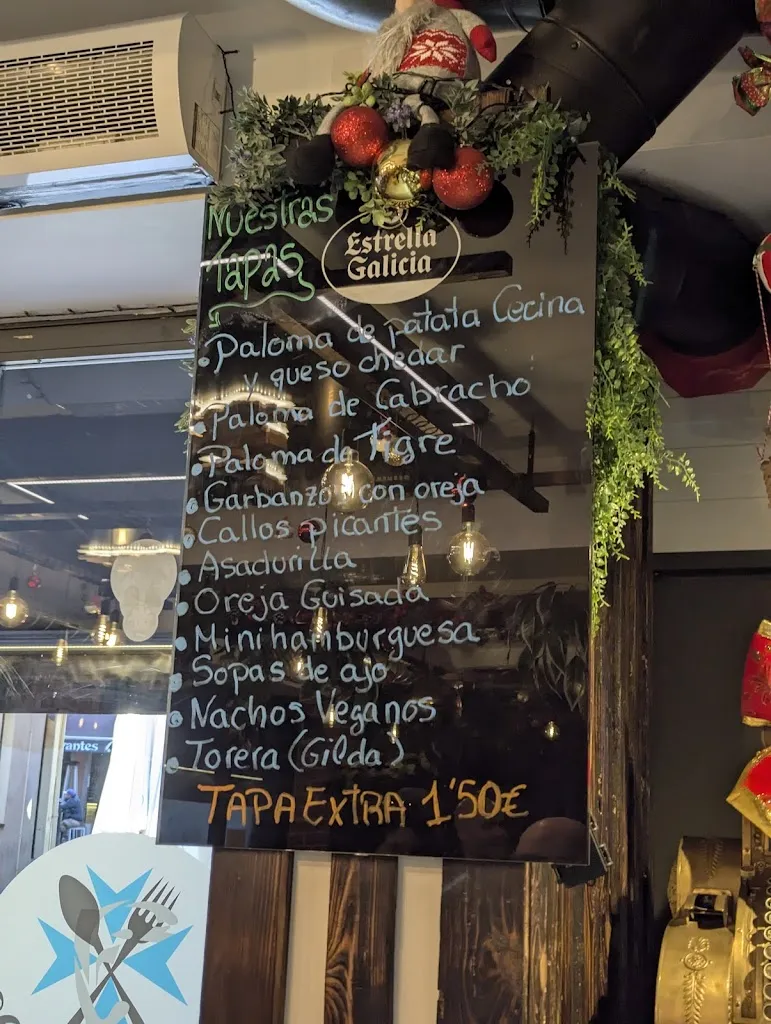 Nuestras
Tapas
Estrella
Galicia
• Paloma de patata Cecina
y queso chedar
• Paloma de Cabracho
• Paloma de Tigre
• Garbanzo con oreja
• Callos picantes
• Asadurilla
• Oreja Guisada
• Minihamburguesa
• Sopas de ajo
• Nachos Veganos
• Torera (Gilda)
TAPA EXTRA 1'50€